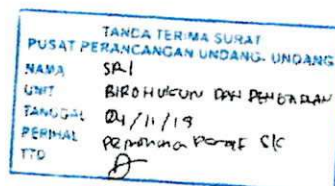 TANDA TERIMA SURAT
PUSAT PERANCANGAN UNDANG-UNDANG
NAMA SRI
UNIT BIRO HUKUM DAN PENGADUAN
TANGGAL 04/11/19
PERIHAL
TTD